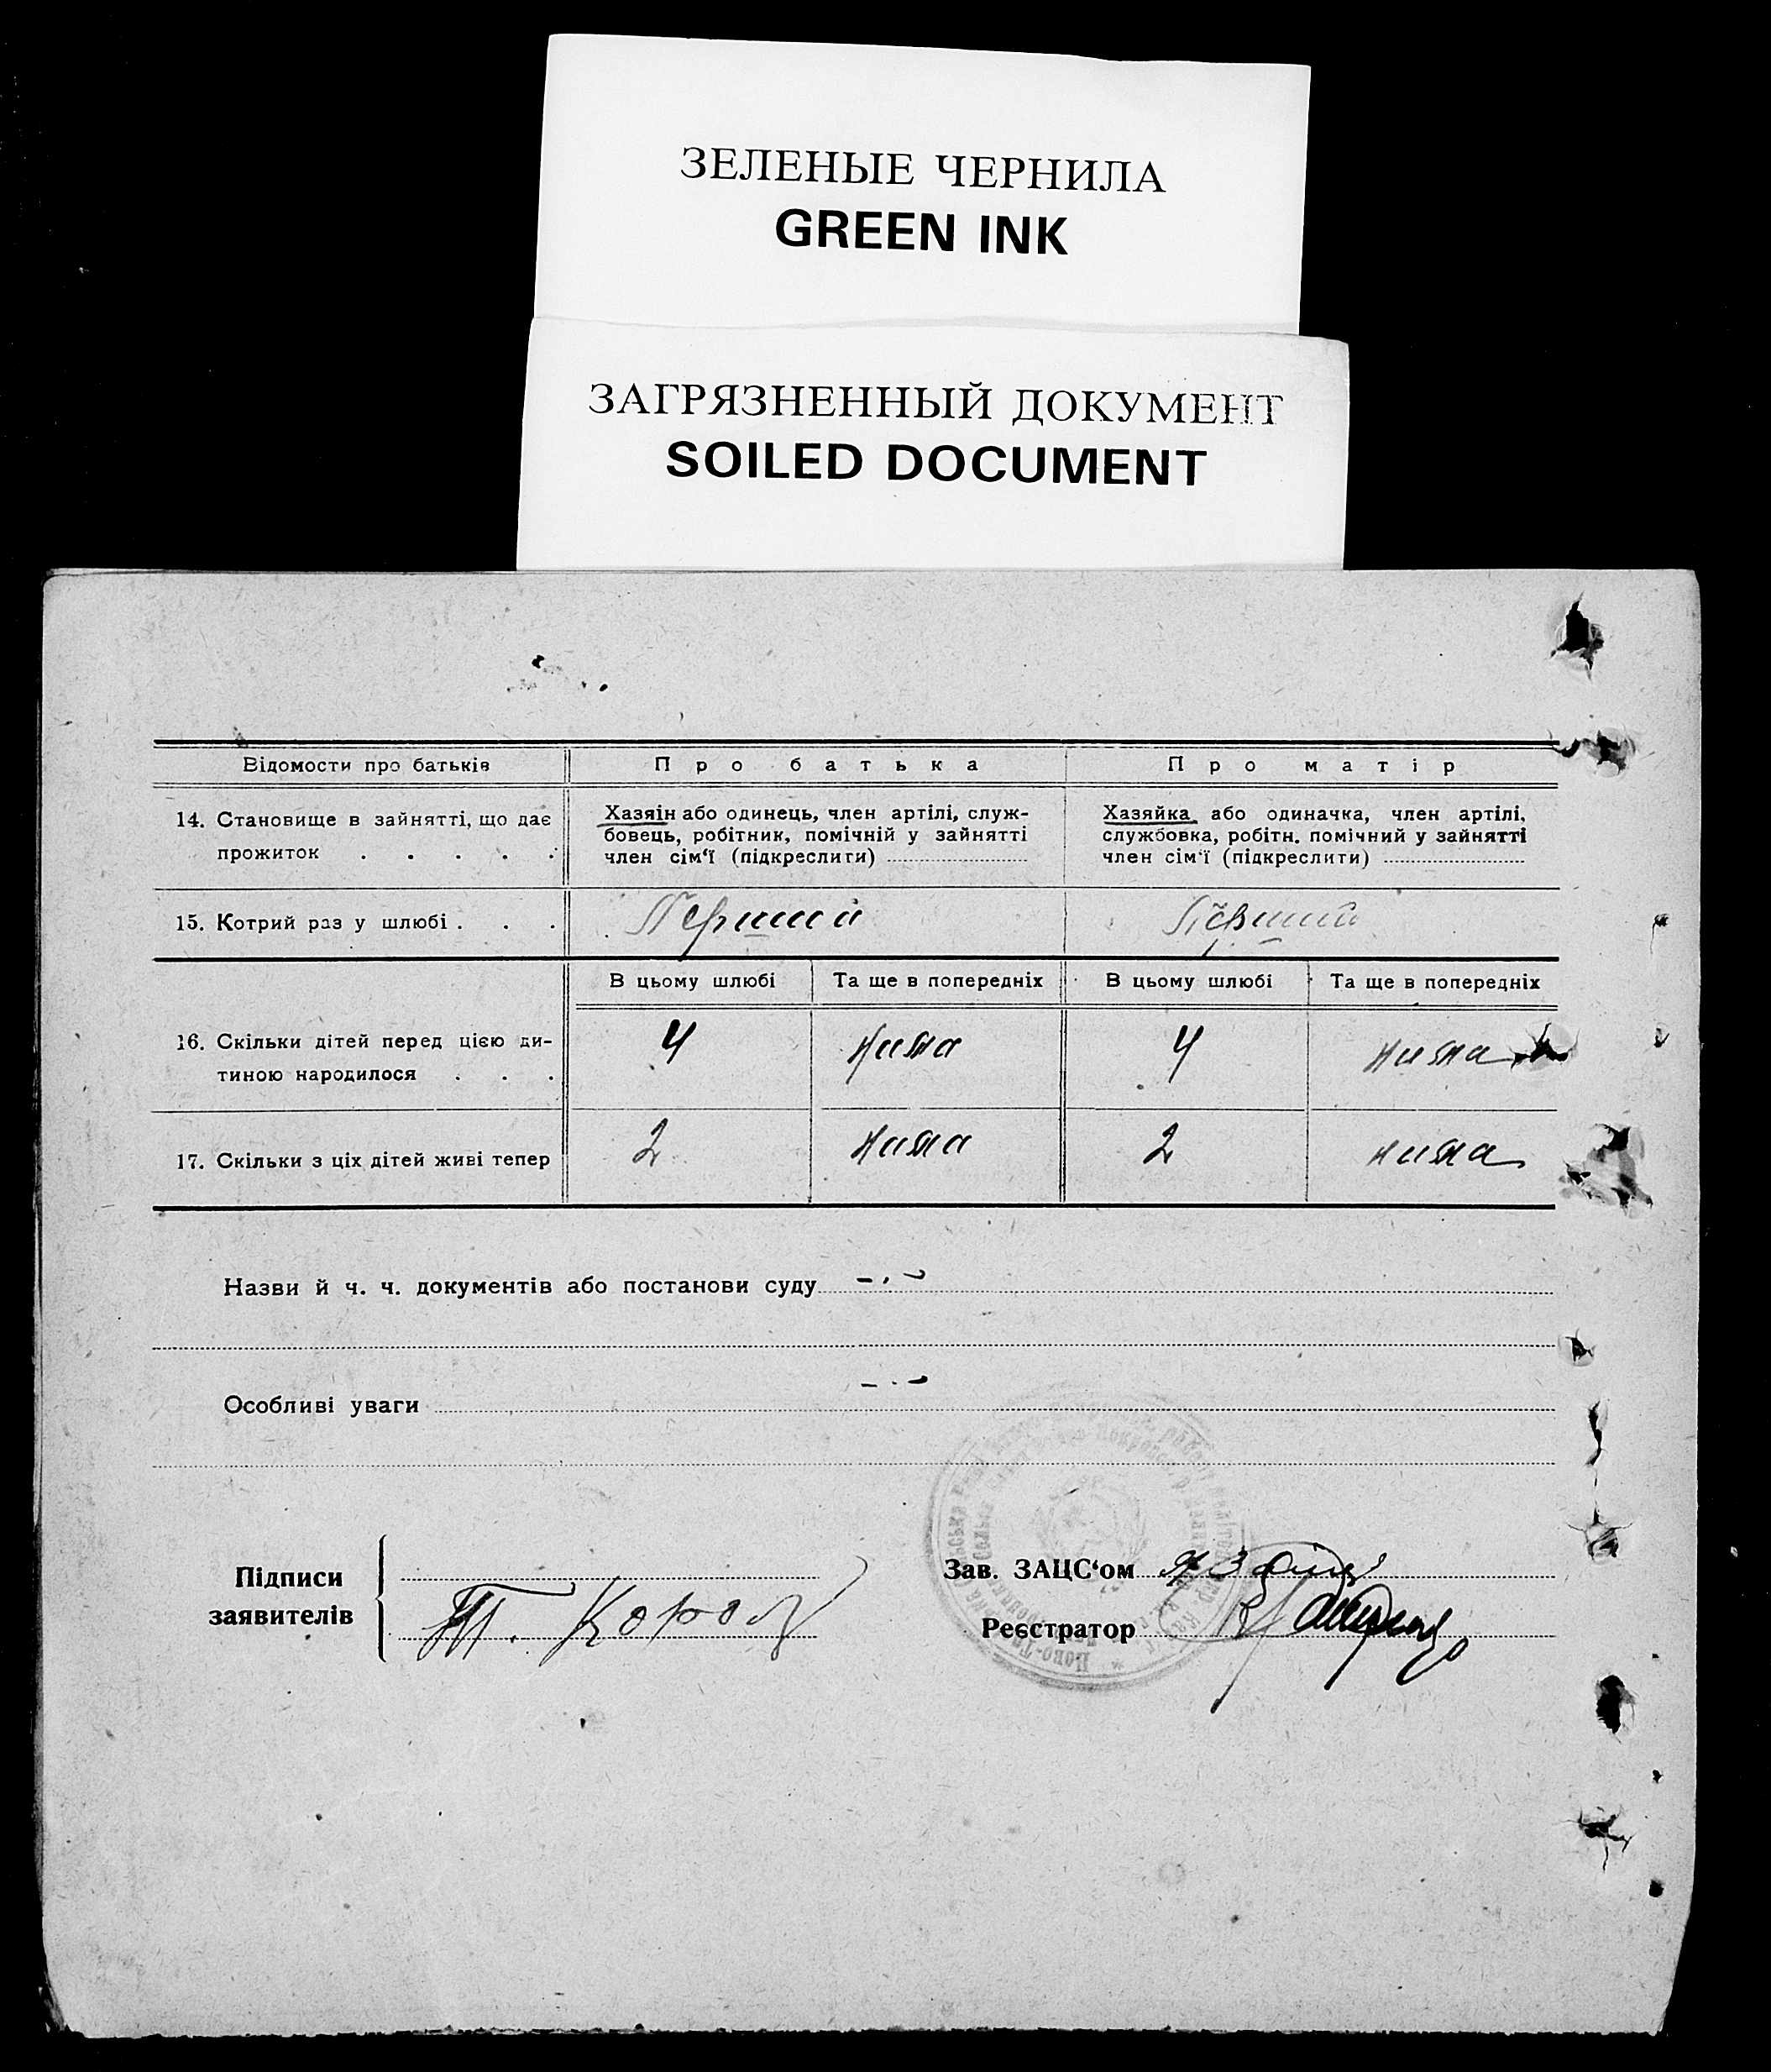 ЗЕЛЕНЫЕ ЧЕРНИЛА
GREEN INK
ЗАГРЯЗНЕННЫЙ ДОКУМЕНТ
SOILED DOCUMENT
Відомости про батьків
Про батька
Про матір
14. Становище в зайнятті, що дає
прожиток . . . . .
Хазяін або одинець, член артілі, служ-
бовець, робітник, помічній у зайнятті
член сім‘ї (підкреслити)
Хазяйка або одиначка, член артілі,
службовка, робітн. помічний у зайнятті
член сім‘ї (підкреслити)
15. Котрий раз у шлюбі . . .
Перший
Перший
В цьому шлюбі
Та ще в попередніх
В цьому шлюбі
Та ще в попередніх
16. Скільки дітей перед цією ди-
тиною народилося . . .
4
нима
4
нима
17. Скільки з ціх дітей живі тепер
2
нима
2
нима
Назви й ч. ч. документів або постанови суду
Особливі уваги
Підписи
заявителів
Т. Король
Зав. ЗАЦС‘ом
Реєстратор